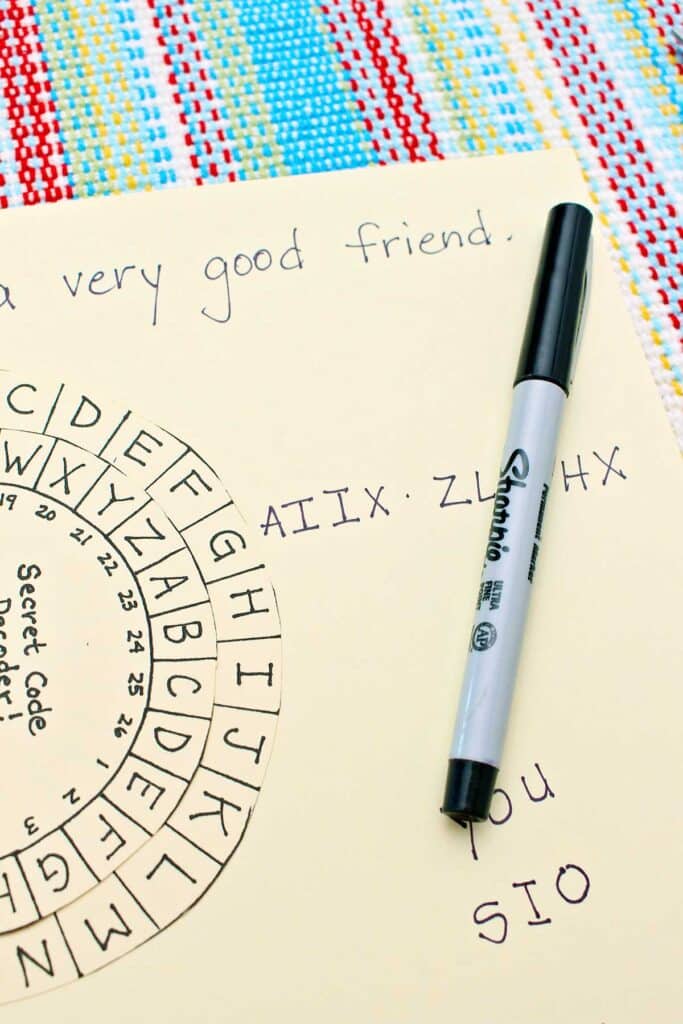 very good friend.
C D E F G H I J K L M N
W X Y Z A B C D E F G H
19 20 21 22 23 24 25 26 1 2 3
Secret Code
Decoder!
AIIX. ZL HX
Sharpie
Permanent Marker
ULTRA
FINE
AP
you
SIO